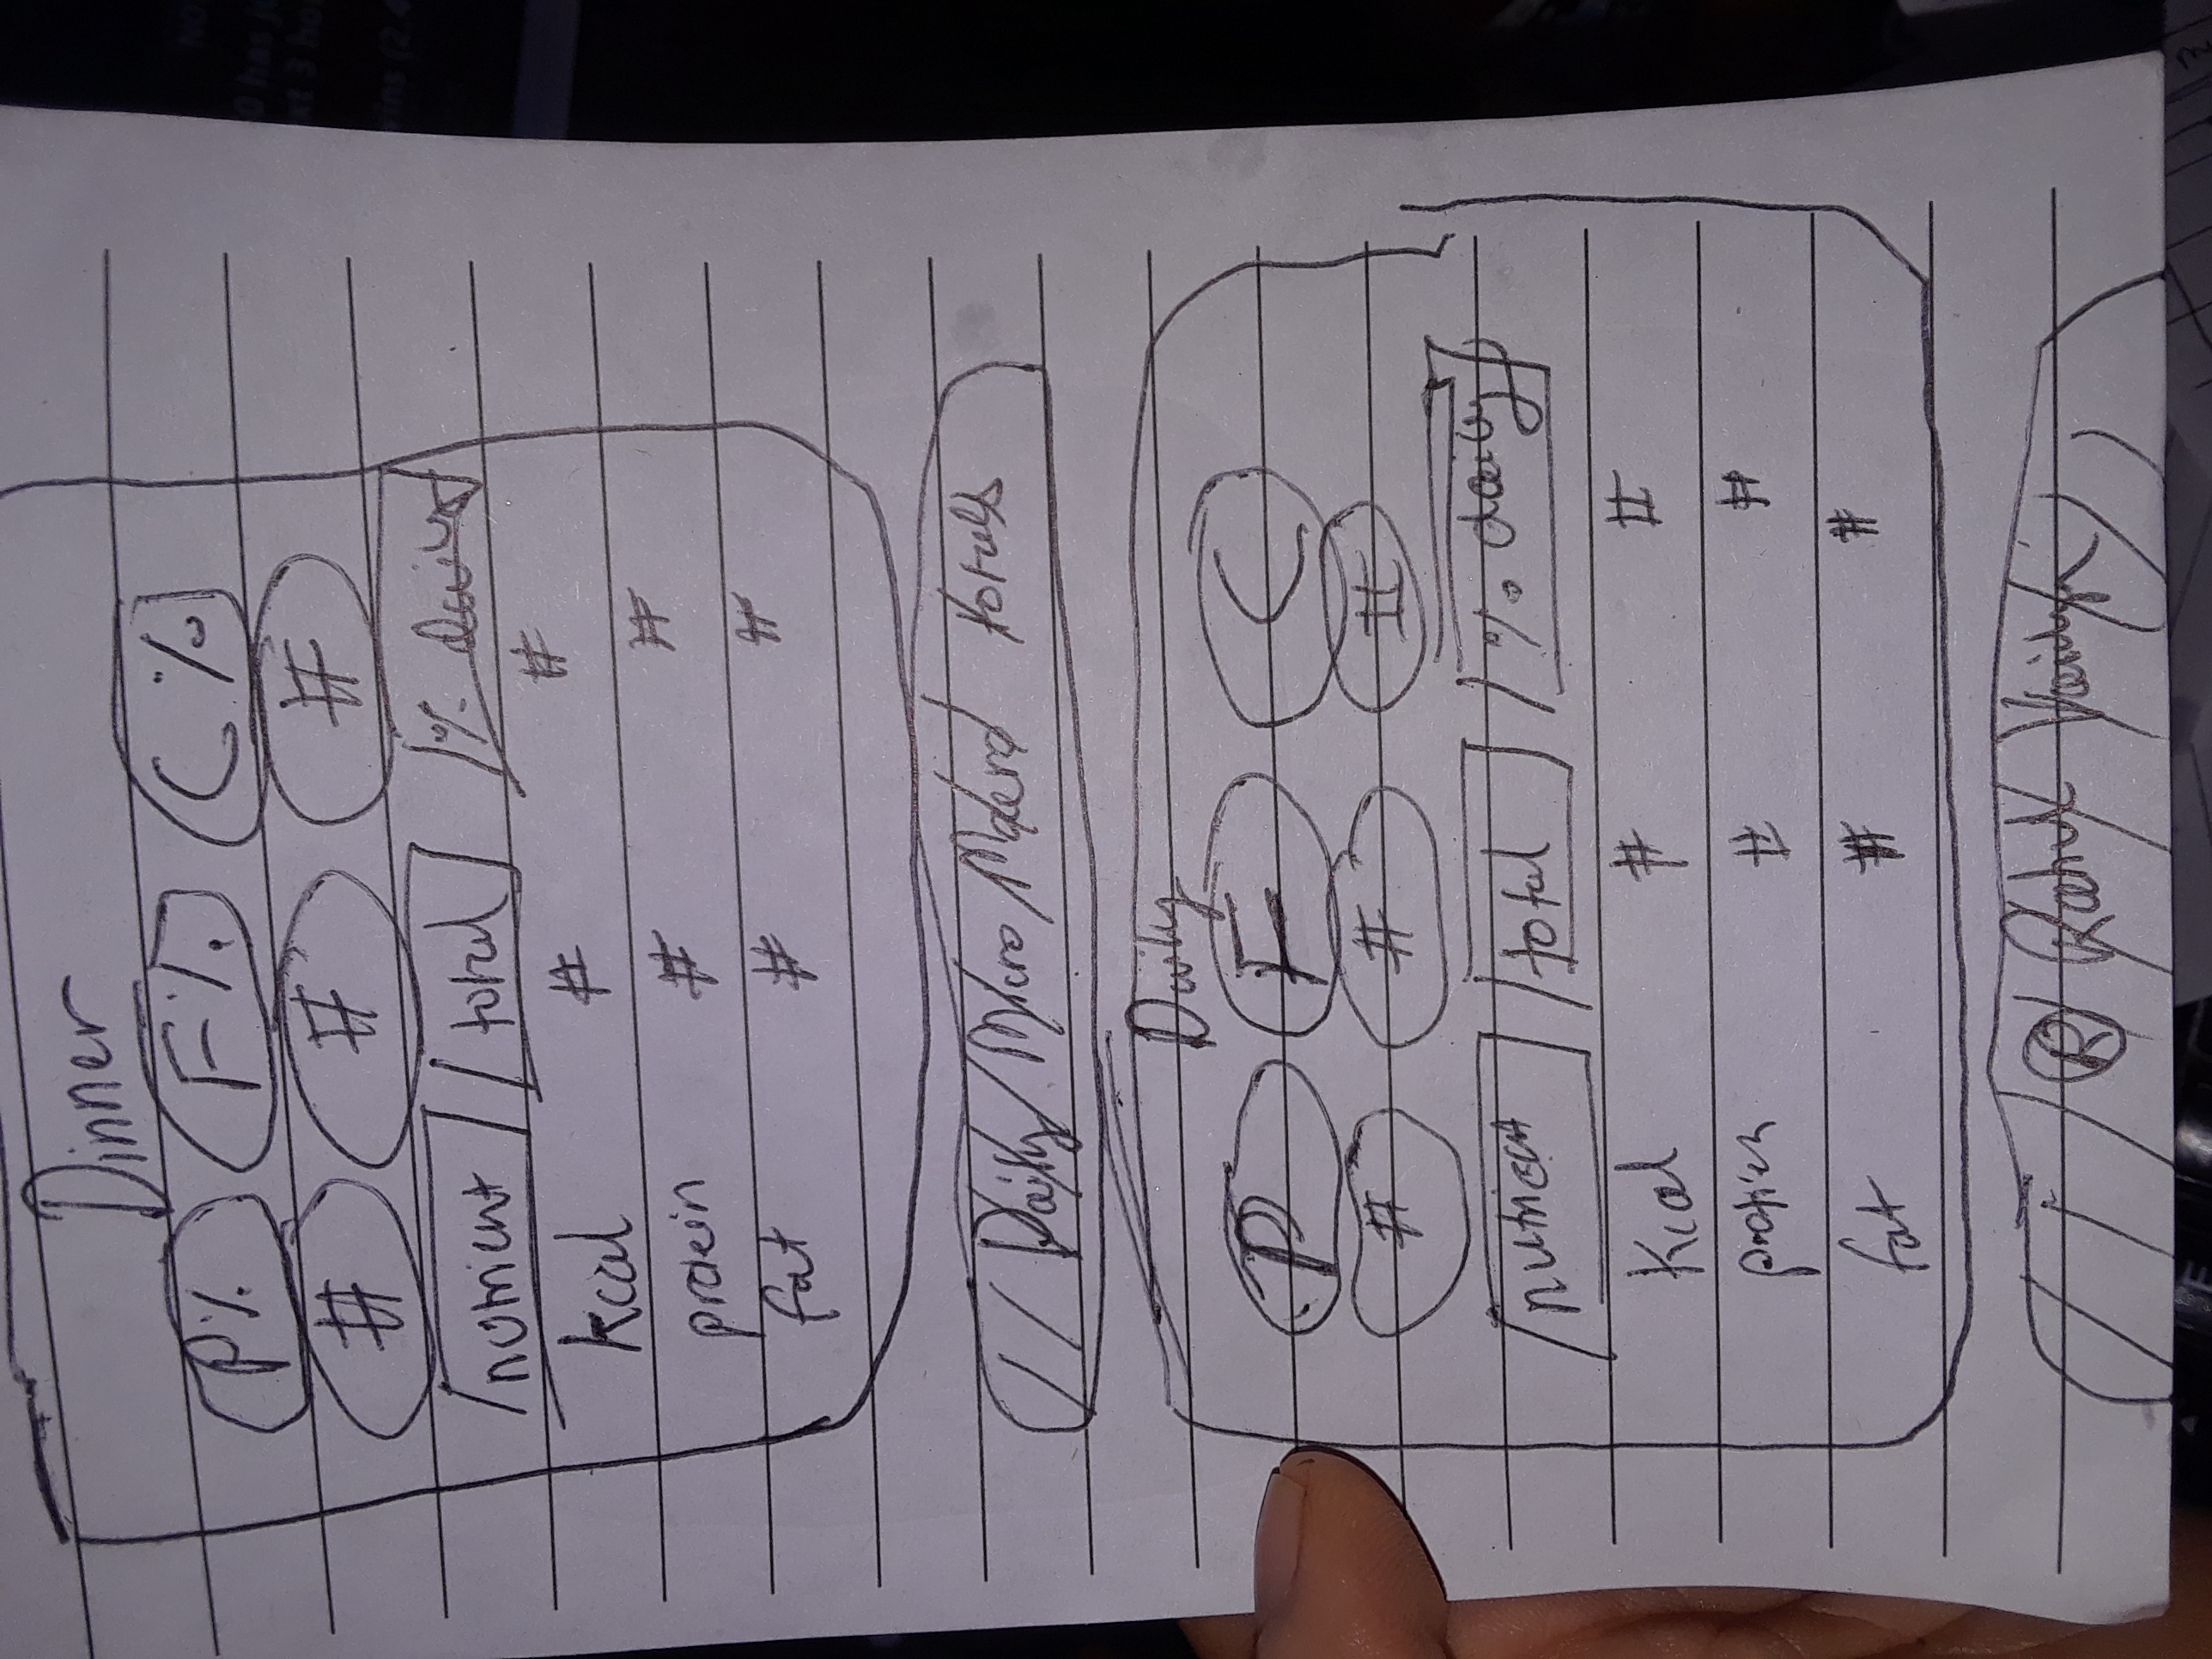 Dinner
P% F% C%
# # #
nutrient total % daily
kcal # #
protein # #
fat # #
Daily Micro Macro totals
Daily
P F C
# # #
nutrient total % daily
Kcal # #
protien # #
fat # #
® Rahul